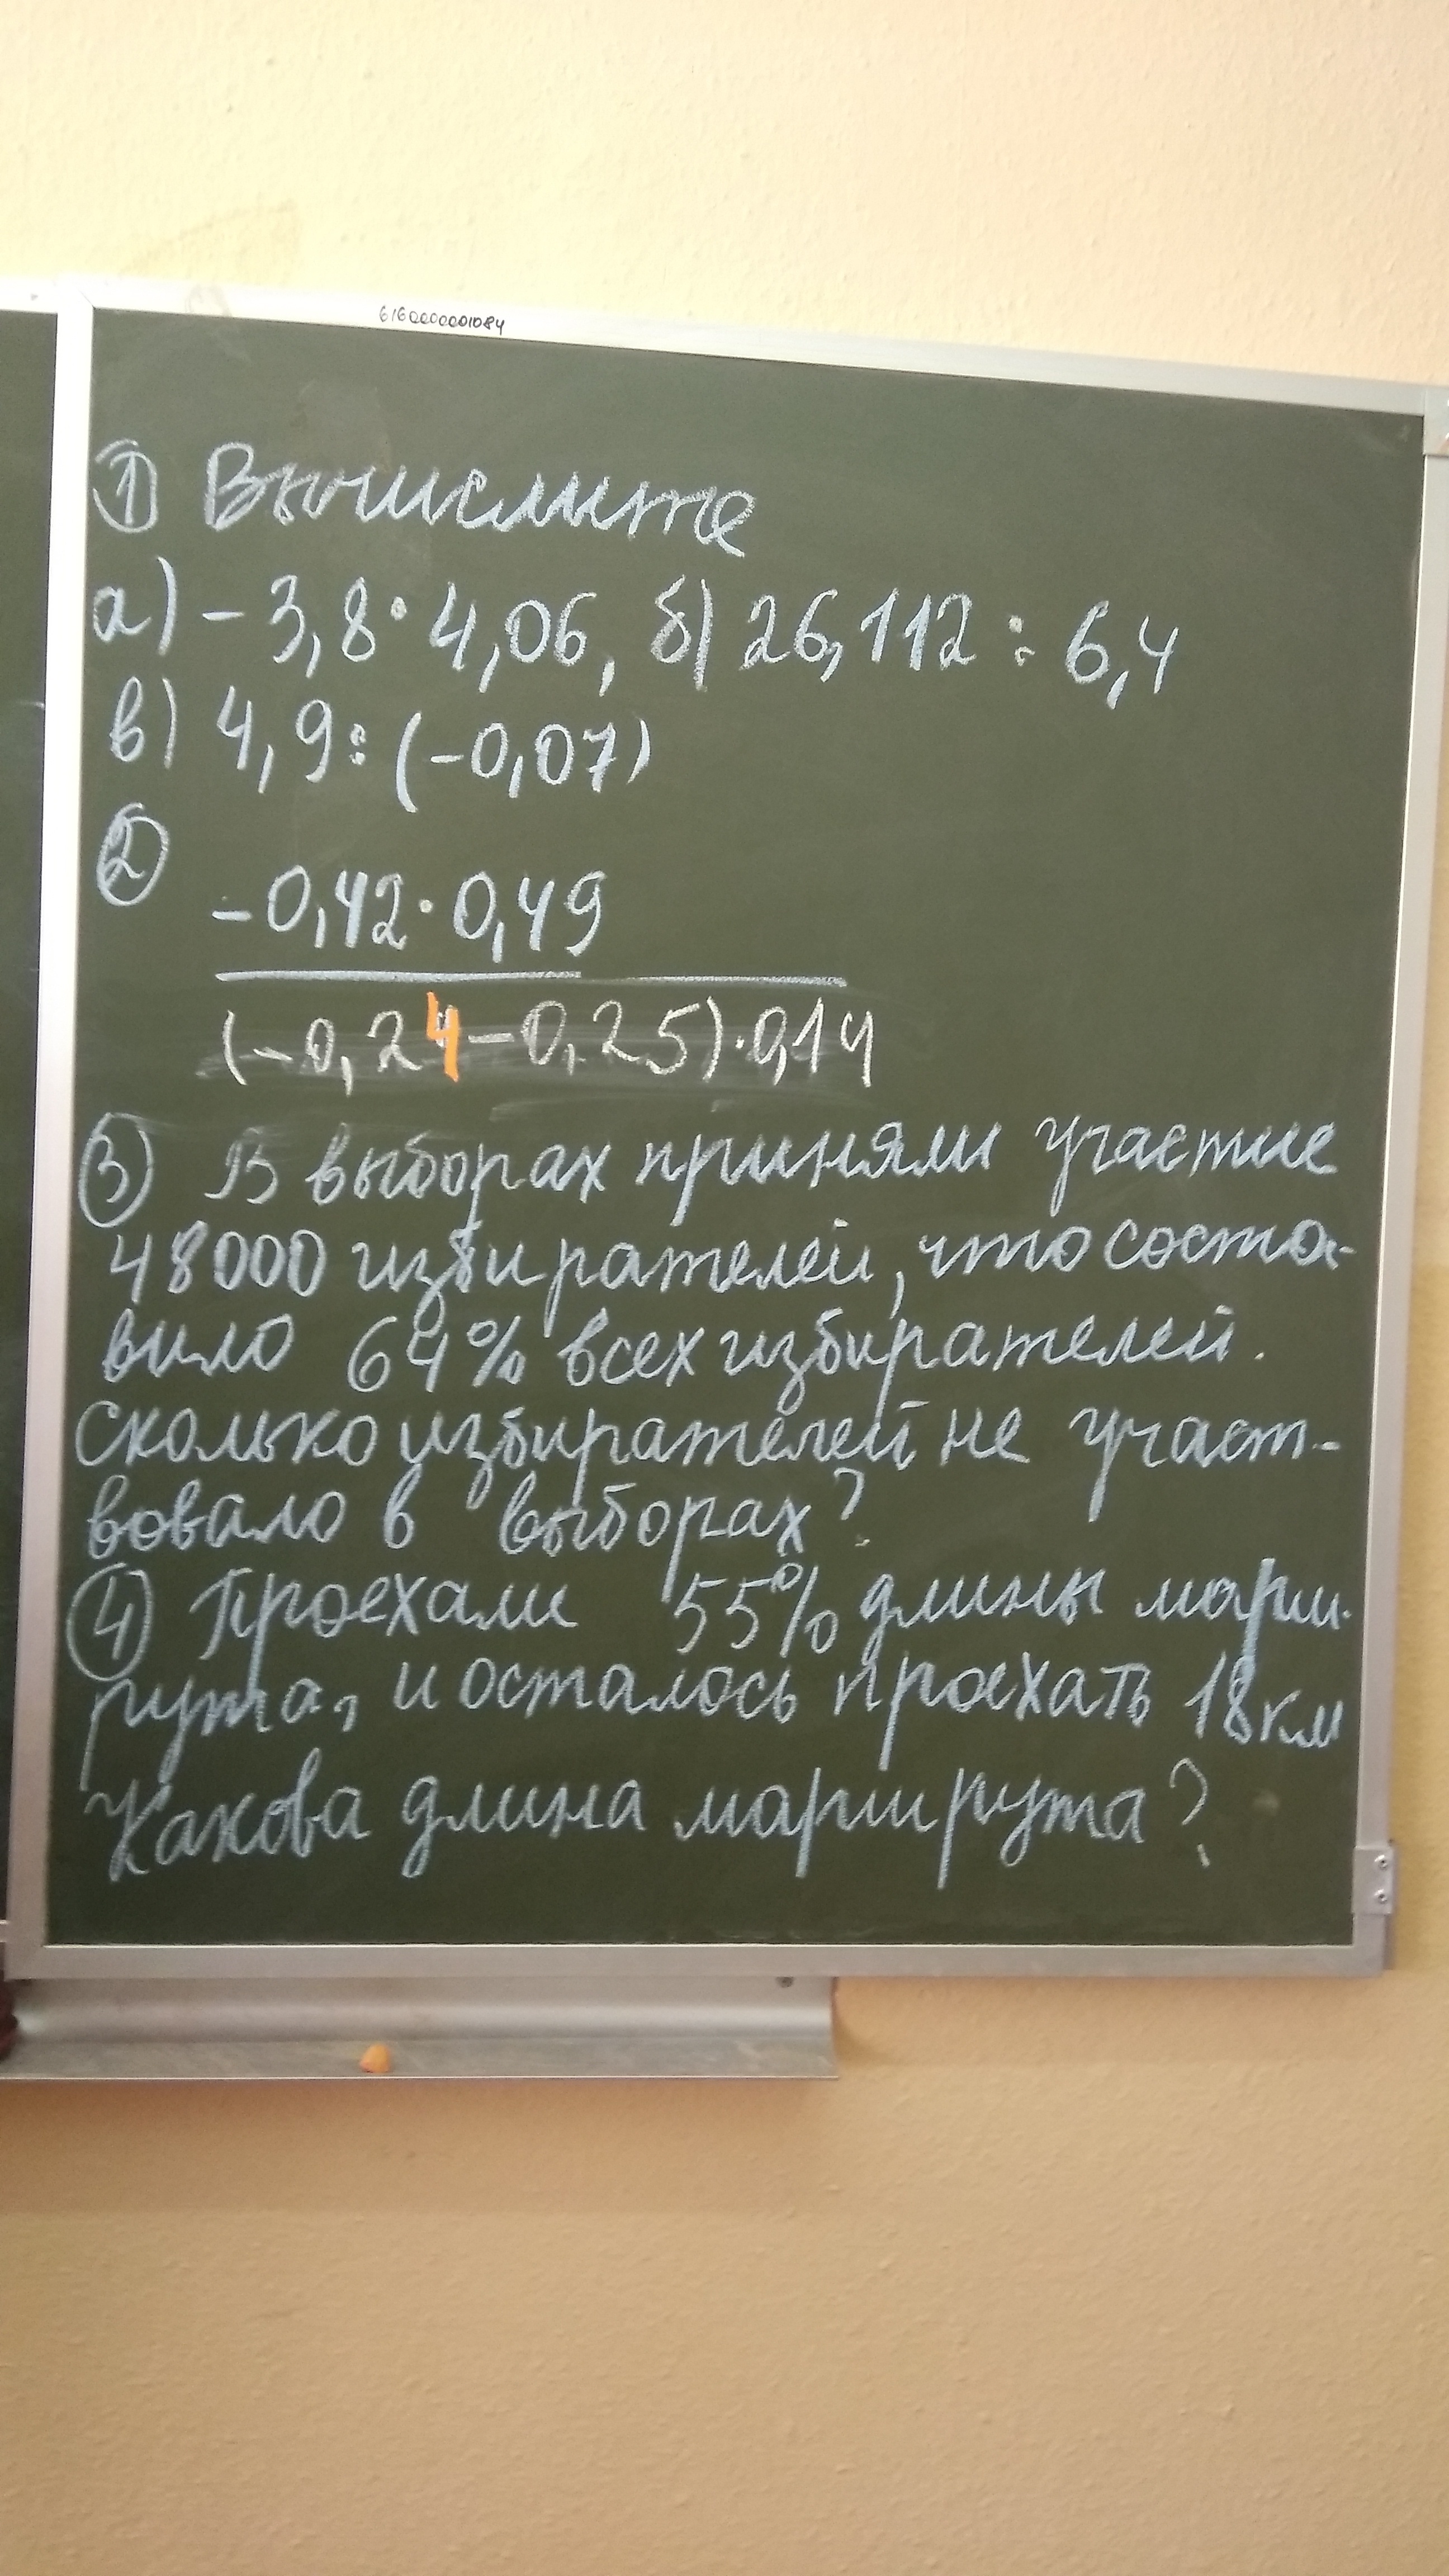 6160000001084
① Вычислите
а) -3,8·4,06, б) 26,112 : 6,4
в) 4,9 : (-0,07)
②
-0,42·0,49
(-0,24-0,25)·0,14
③ В выборах приняли участие
48000 избирателей, что соста-
вило 64% всех избирателей.
Сколько избирателей не участ-
вовало в выборах?
④ Проехали 55% длины марш-
рута, и осталось проехать 18км
Какова длина маршрута?